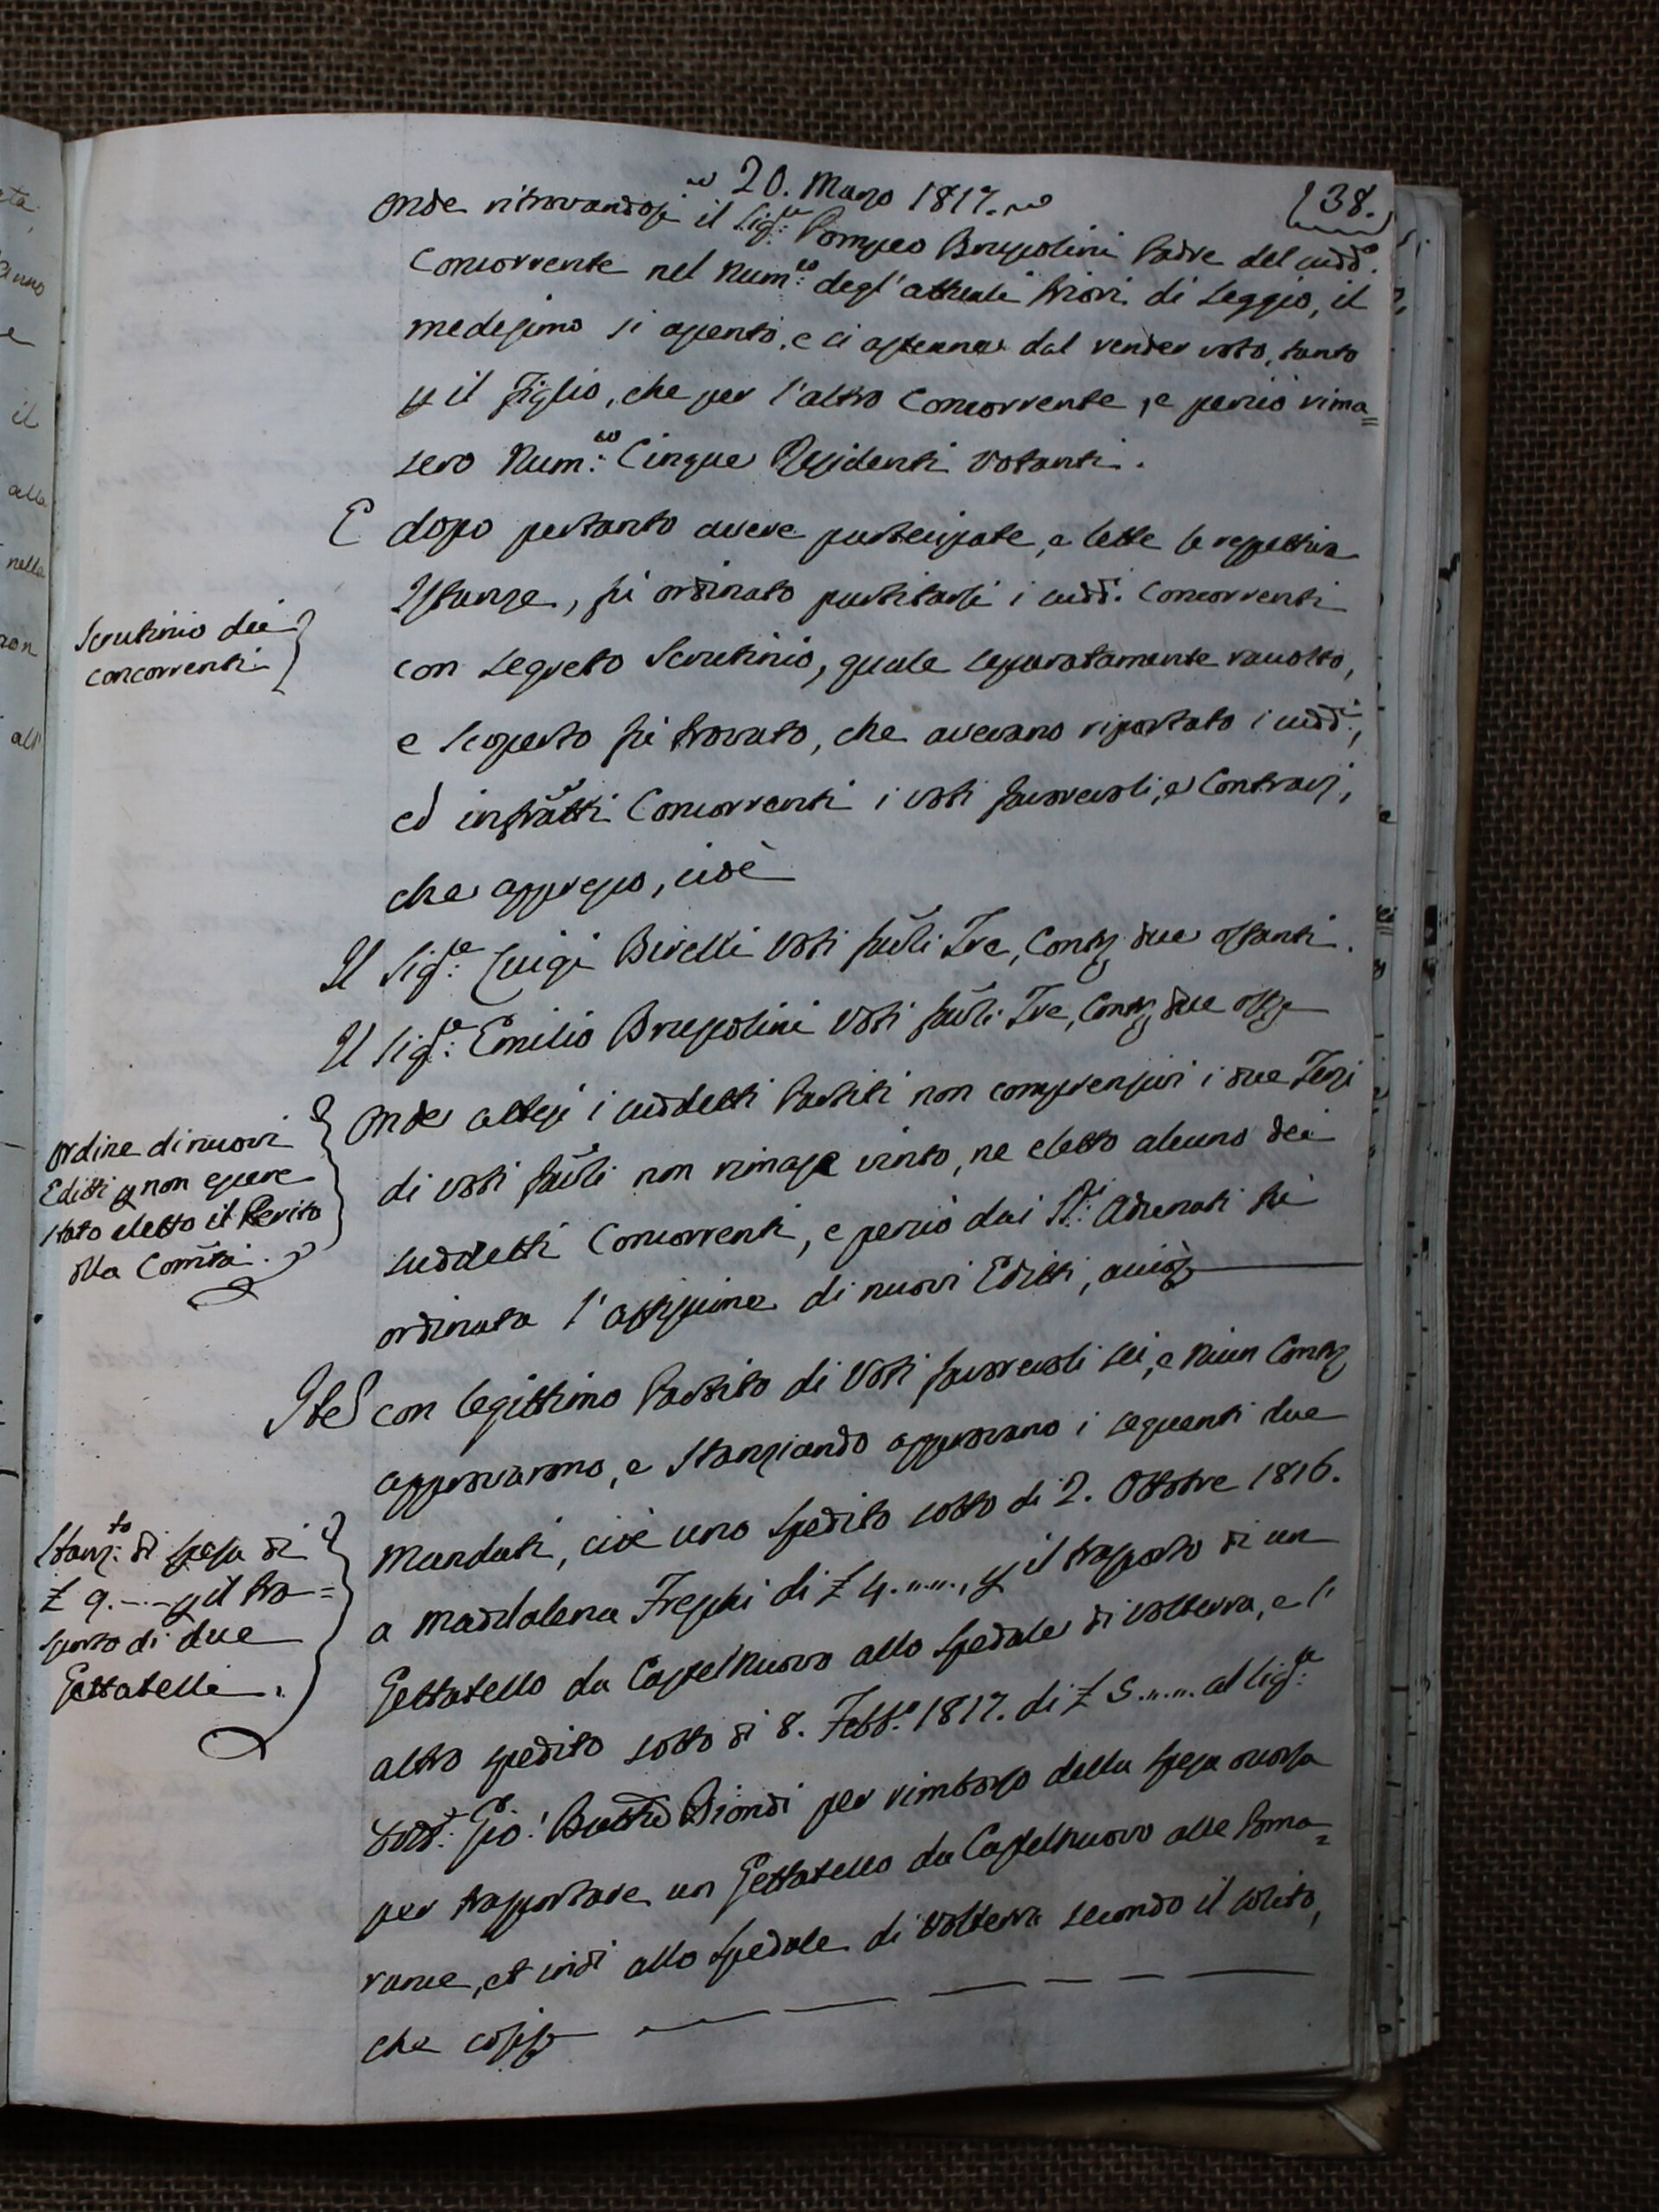 20. Marzo 1817.
138.
Onde ritrovandosi il Sig:re Pompeo Bruscolini Padre del sudd:o
Concorrente nel Num:ro degl'attuali Priori di Seggio, il
medesimo si assentò, e si astenne dal render voto, tanto
p il Figlio, che per l'altro Concorrente, e perciò rima=
sero Num:ro Cinque Residenti Votanti.
E dopo pertanto avere partecipate, e lette le respettive
Istanze, fù ordinato partitarsi i sudd:i Concorrenti
con segreto Scrutinio, quale separatamente raccolto,
e scoperto fù trovato, che avevano riportato i sudd:i,
ed infratti Concorrenti i voti favorevoli, e Contrarj,
che appresso, cioè
Scrutinio dei
concorrenti
Il Sig:re Luigi Birelli Voti favli Tre, Contrj due ostanti.
Il Sig:re Emilio Bruscolini Voti favli Tre, Contrj due
Onde attesi i suddetti Partiti non comprensivi i due Terzi
di voti favli non rimase vinto, ne eletto alcuno dei
suddetti Concorrenti, e perciò dai SS:ri Adunati fù
ordinata l'affissione di nuovi Editti, acciò
Ordine di nuovi
Editti p non essere
stato eletto il Perito
della Comità.
Item con legittimo Partito di Voti favorevoli sei, e niun Contrj
approvarono, e stanziando approvano i seguenti due
Mandati, cioè uno spedito sotto dì 2. Ottobre 1816.
a Maddalena di £ 4. „ „, p il trasporto di un
Gettatello da Castelnuovo allo Spedale di Volterra, e l'
altro spedito sotto dì 8. Febb:o 1817. di £ 5. „ „ al Sig:re
Dott:e Gio: Batta Biondi per rimborso della spesa occorsa
per trasportare un Gettatello da Castelnuovo alle Poma=
rance, et indi allo Spedale di Volterra secondo il solito,
che
Stanz:to di spesa di
£ 9. - - p il tra=
sporto di due
Gettatelli.